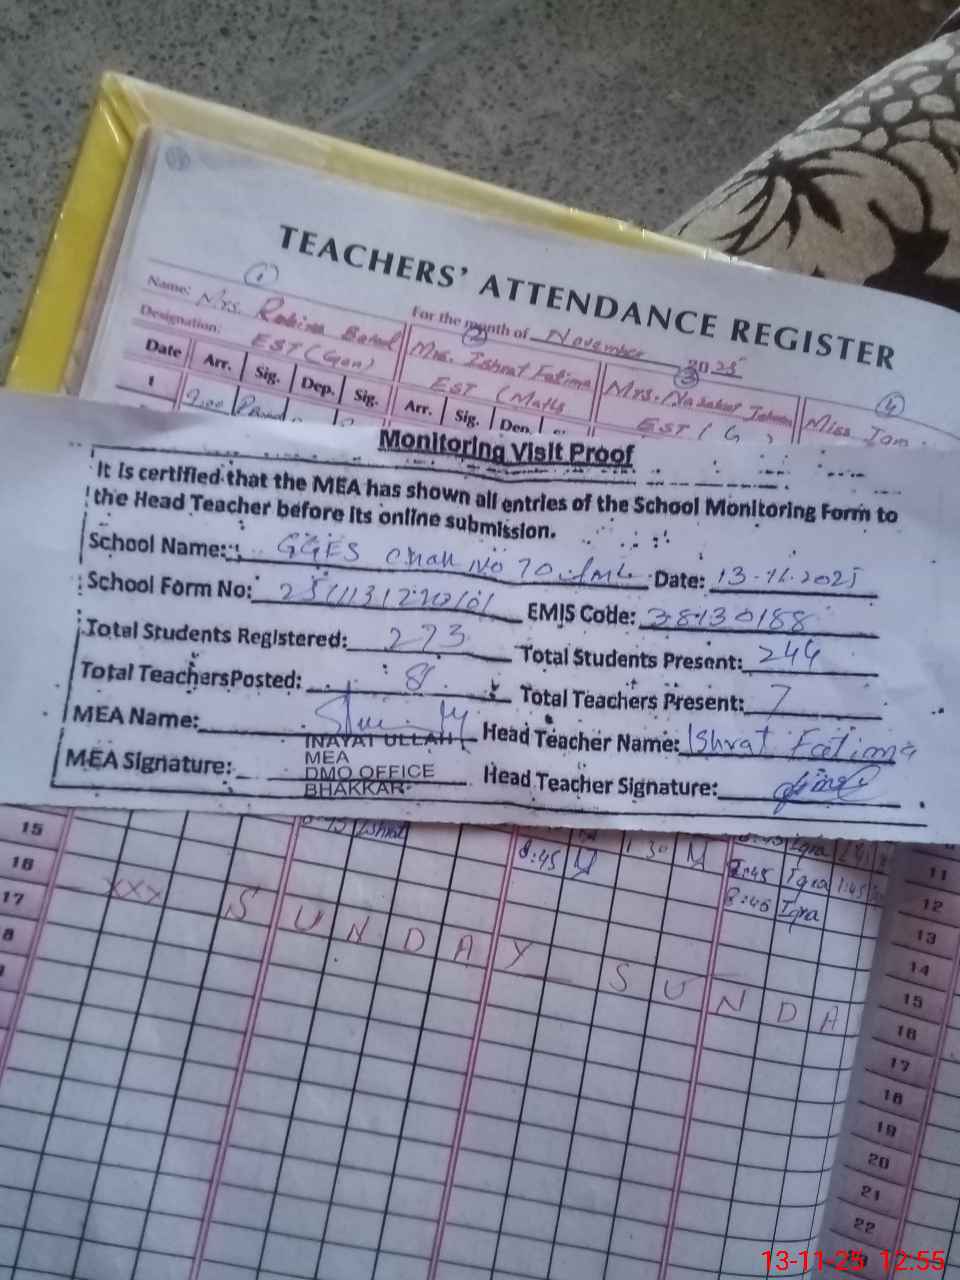 TEACHERS' ATTENDANCE REGISTER
For the month of November 2025
1 2 3 4
Name: Mrs. Rabina Mrs. Ishrat Fatima Mrs. Miss
Designation: EST (Gen) EST (Maths EST (G)
Date Arr. Sig. Dep. Sig. Arr. Sig. Dep.
1
Monitoring Visit Proof
It is certified that the MEA has shown all entries of the School Monitoring Form to
the Head Teacher before its online submission.
School Name: GGES Chak No 70 /ML Date: 13-11-2025
School Form No: EMIS Code: 38130188
Total Students Registered: 273 Total Students Present: 244
Total Teachers Posted: 8 Total Teachers Present: 7
MEA Name: Head Teacher Name: Ishrat Fatima
INAYAT ULLAH
MEA Signature: Head Teacher Signature:
MEA
DMO OFFICE
BHAKKAR
15 8:45 1 30 8:45 Iqra 1:45 11
16 8:45 Iqra 12
17 XXX SUNDAY SUNDA 13
14
15
16
17
18
19
20
21
22
13-11-25 12:55